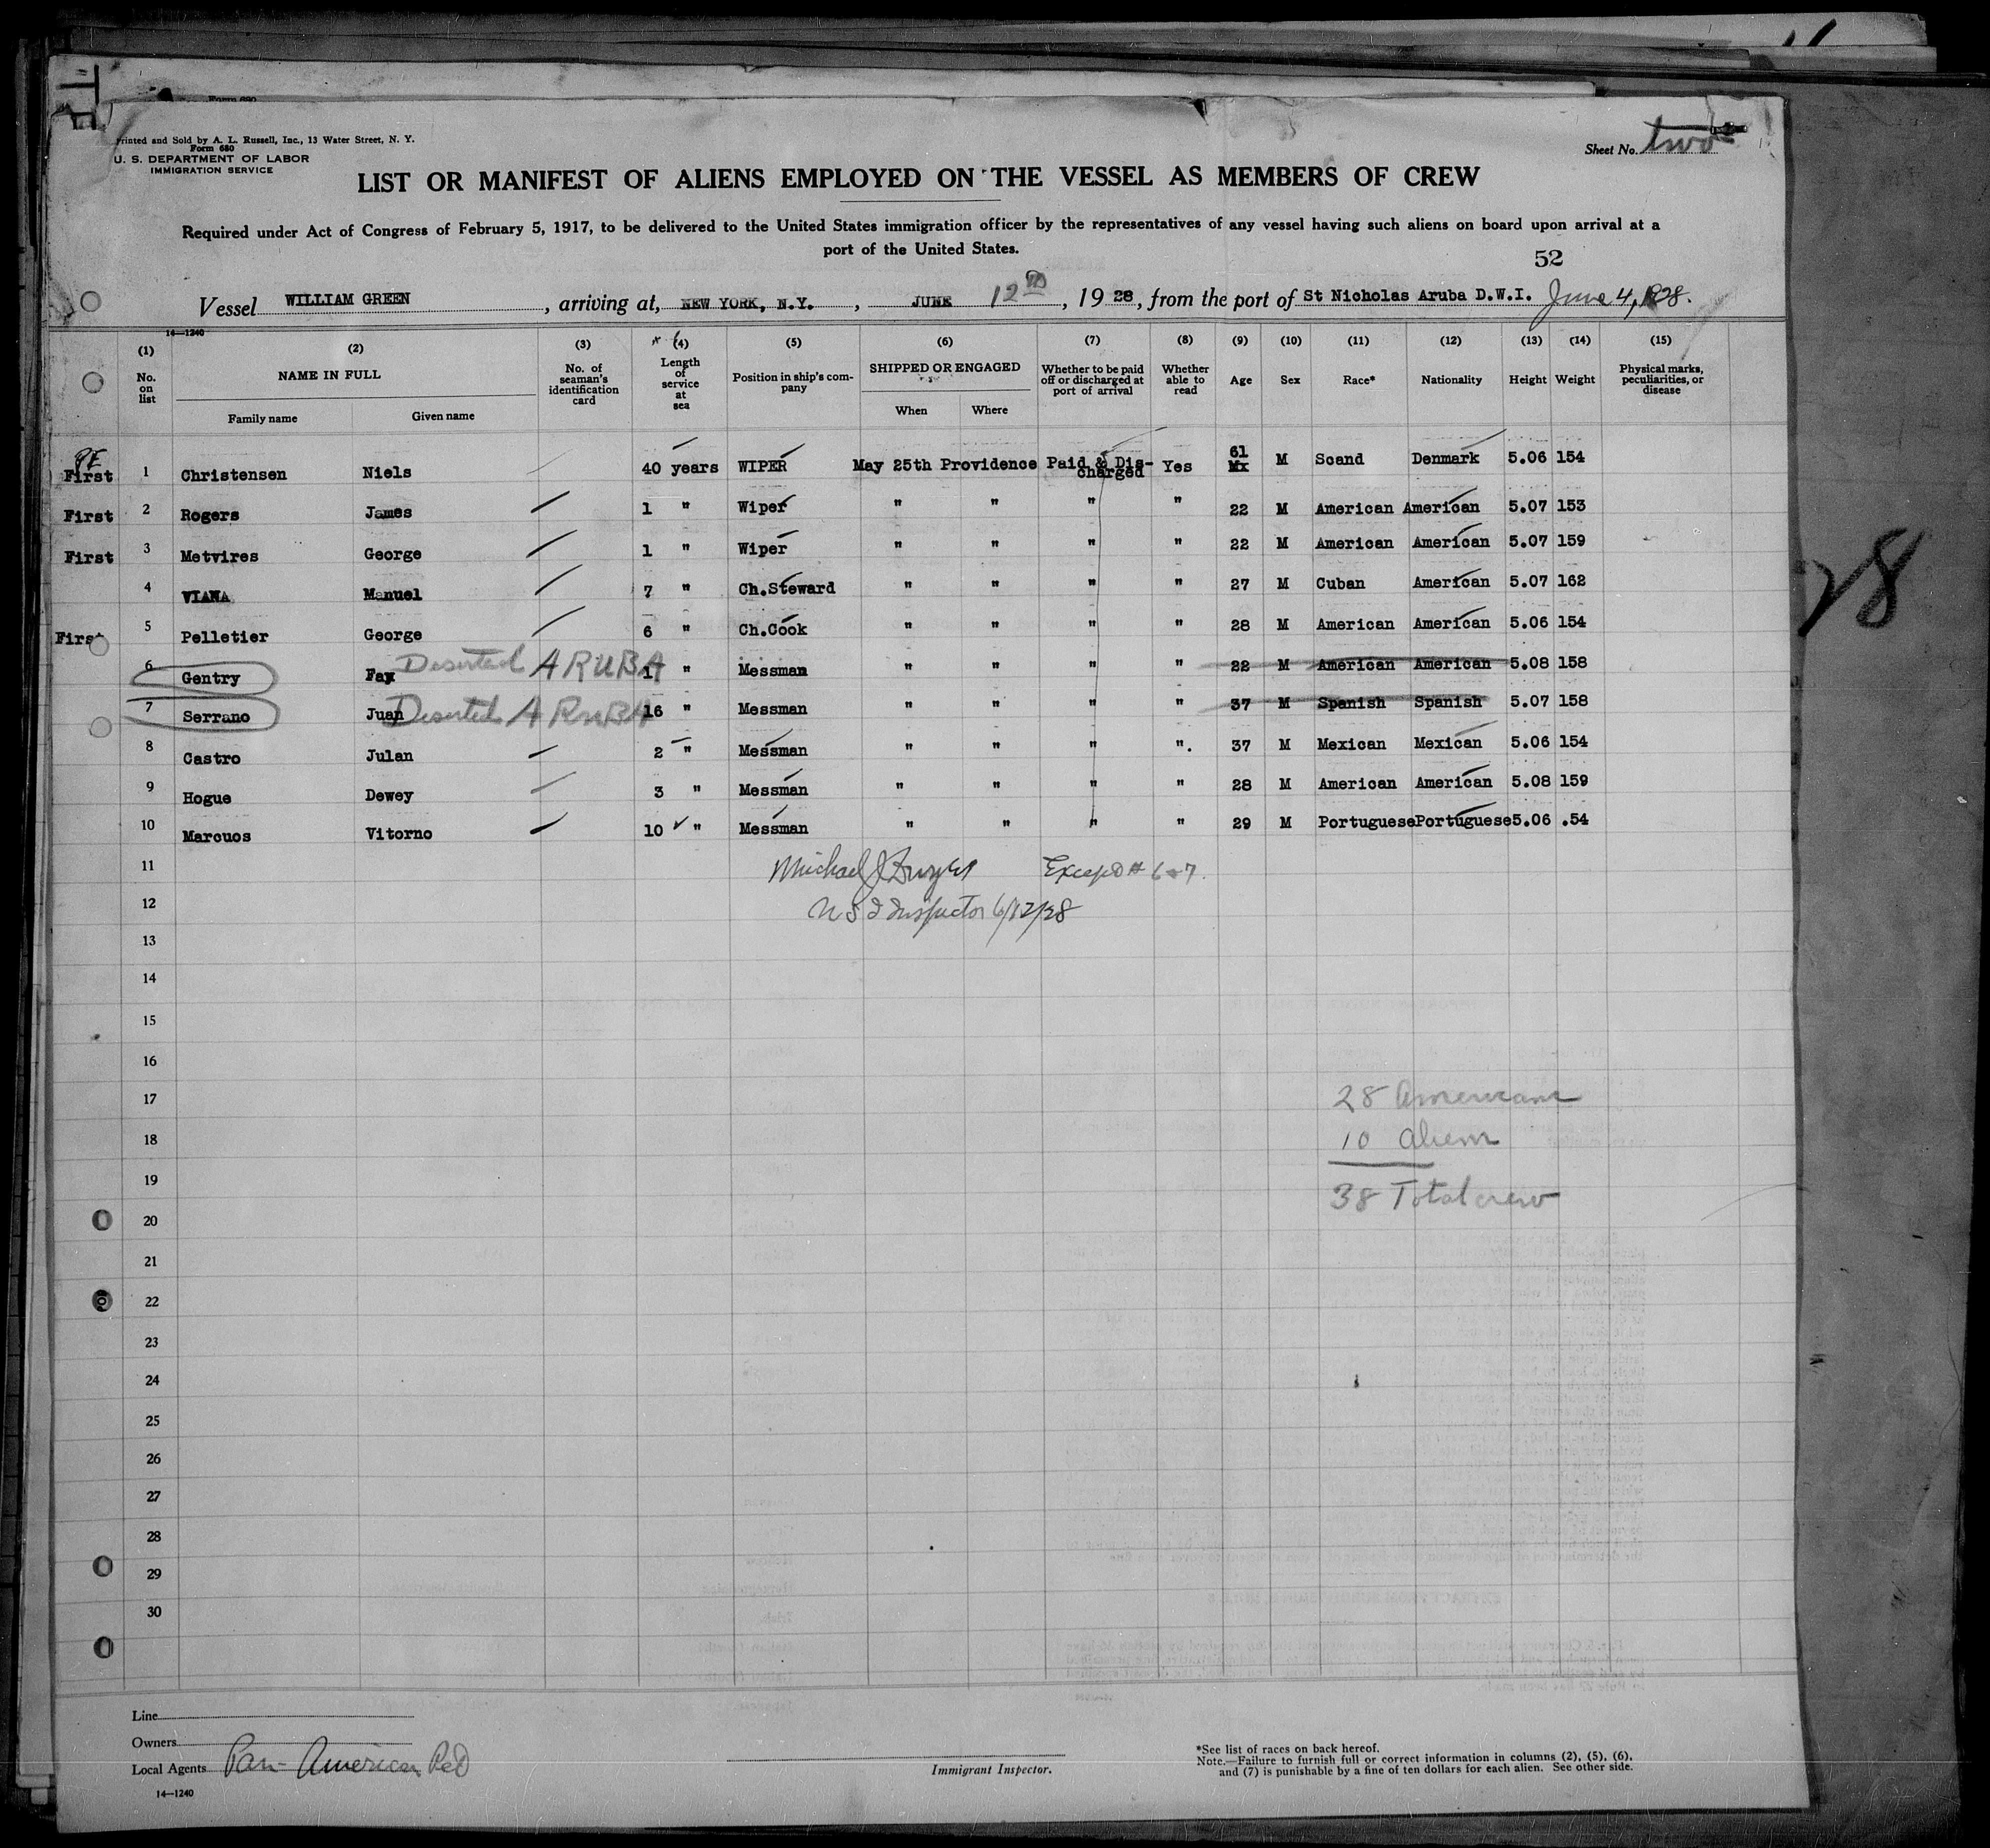 Form 680
Printed and Sold by A. L. Russell, Inc., 13 Water Street, N. Y.
Form 680
U. S. DEPARTMENT OF LABOR
IMMIGRATION SERVICE
Sheet No. two
LIST OR MANIFEST OF ALIENS EMPLOYED ON THE VESSEL AS MEMBERS OF CREW
Required under Act of Congress of February 5, 1917, to be delivered to the United States immigration officer by the representatives of any vessel having such aliens on board upon arrival at a
port of the United States.
52
Vessel WILLIAM GREEN, arriving at, NEW YORK, N.Y., JUNE 12th, 1928, from the port of St Nicholas Aruba D.W.I. June 4, 1928.
14—1240
(1) (2) (3) (4) (5) (6) (7) (8) (9) (10) (11) (12) (13) (14) (15)
No. on list NAME IN FULL Family name Given name No. of seaman's identification card Length of service at sea Position in ship's company SHIPPED OR ENGAGED When Where Whether to be paid off or discharged at port of arrival Whether able to read Age Sex Race* Nationality Height Weight Physical marks, peculiarities, or disease
First 1 Christensen Niels 40 years WIPER May 25th Providence Paid & Discharged Yes 61 M Scand Denmark 5.06 154
First 2 Rogers James 1 " Wiper " " " " 22 M American American 5.07 153
First 3 Metvires George 1 " Wiper " " " " 22 M American American 5.07 159
4 VIANA Manuel 7 " Ch.Steward " " " " 27 M Cuban American 5.07 162
First 5 Pelletier George 6 " Ch.Cook " " " " 28 M American American 5.06 154
6 Gentry Fay Deserted ARUBA 1 " Messman " " " " 22 M American American 5.08 158
7 Serrano Juan Deserted ARUBA 16 " Messman " " " " 37 M Spanish Spanish 5.07 158
8 Castro Julan 2 " Messman " " " ". 37 M Mexican Mexican 5.06 154
9 Hogue Dewey 3 " Messman " " " " 28 M American American 5.08 159
10 Marcuos Vitorno 10 " Messman " " " " 29 M Portuguese Portuguese 5.06 .54
11 Michael J Except # 6 & 7.
12 U S I Inspector 6/12/28
13
14
15
16
17 28 Americans
18 10 Aliens
19 38 Total crew
20
21
22
23
24
25
26
27
28
29
30
28
Line
Owners
Local Agents Pan-American Pet
14—1240
Immigrant Inspector.
*See list of races on back hereof.
Note.—Failure to furnish full or correct information in columns (2), (5), (6),
and (7) is punishable by a fine of ten dollars for each alien. See other side.